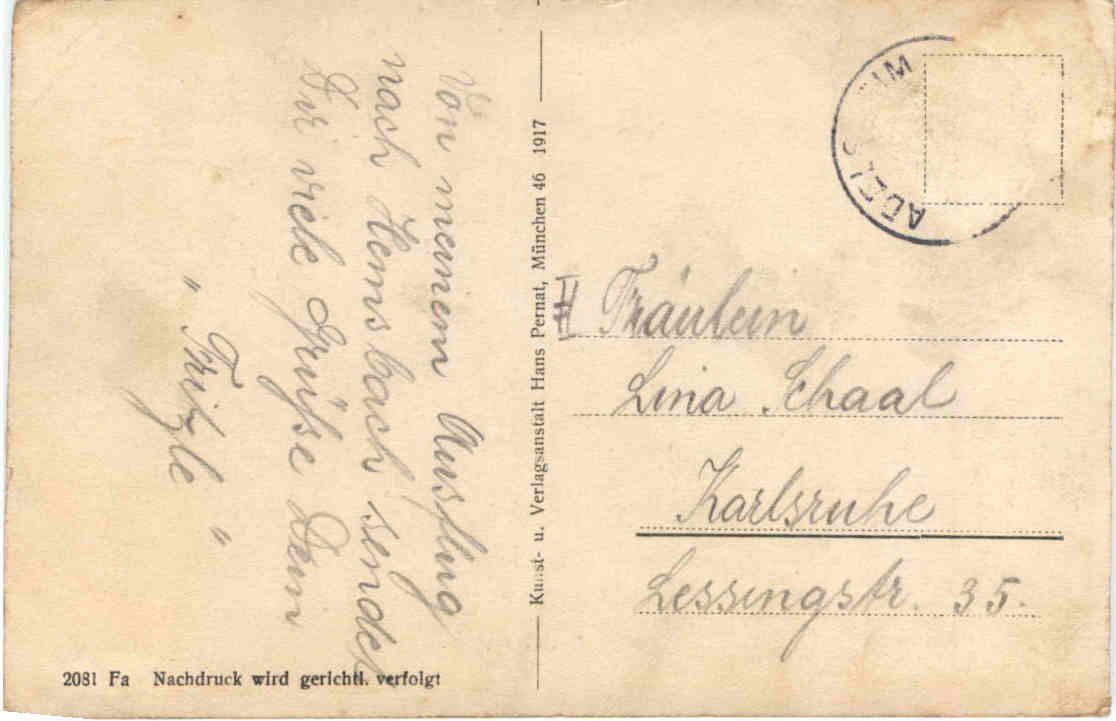 Von meinem Ausflug
nach Hemsbach sendet
Dir viele Grüße Dein
"Fritzle"
Kunst- u. Verlagsanstalt Hans Pernat, München 46 1917
ADELS IM
Fräulein
Lina Schaal
Karlsruhe
Lessingstr. 35.
2081 Fa Nachdruck wird gerichtl. verfolgt